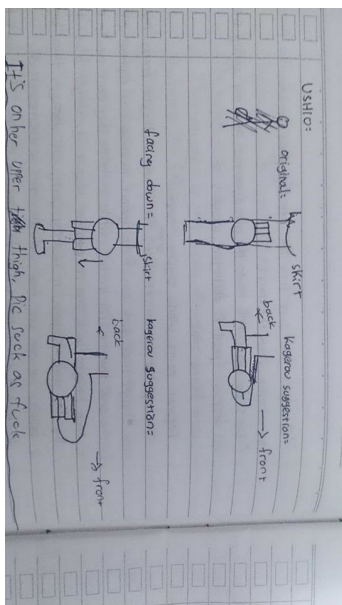 USHIO:
original:
skirt
kagerou suggestion:
back
front
facing down:
skirt
kagerou suggestion:
back
front
It's on her upper thigh, Pic suck as fuck